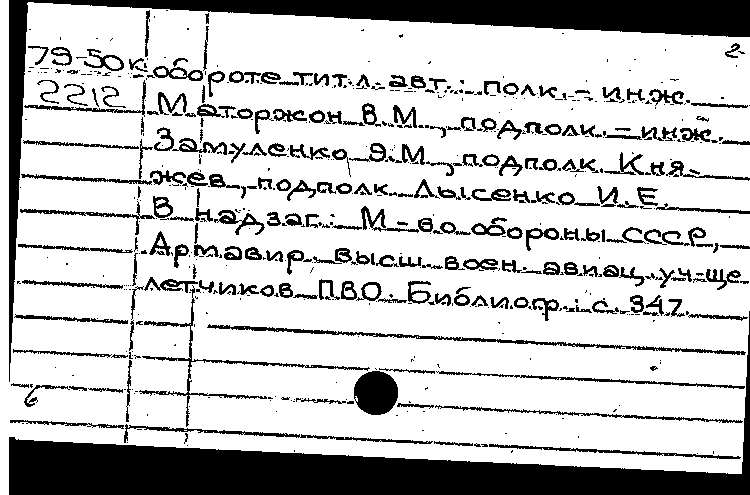 2
79-50к обороте тит. л. авт.: полк.-инж.
2212 Маторжон В.М., подполк.-инж.
Замуленко Э.М., подполк. Кня-
жев, подполк. Лысенко И.Е.
В надзаг.: М-во обороны СССР,
Армавир. высш. воен. авиац. уч-ще
летчиков ПВО. Библиогр.: с. 347.
6